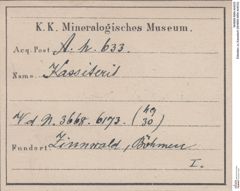 K. K. Mineralogisches Museum.
Acq. Post A. h. 633.
Name Kassiterit
V d N. 3668. 6173. (hg 30)
Fundort Zinnwald, Böhmen
I.